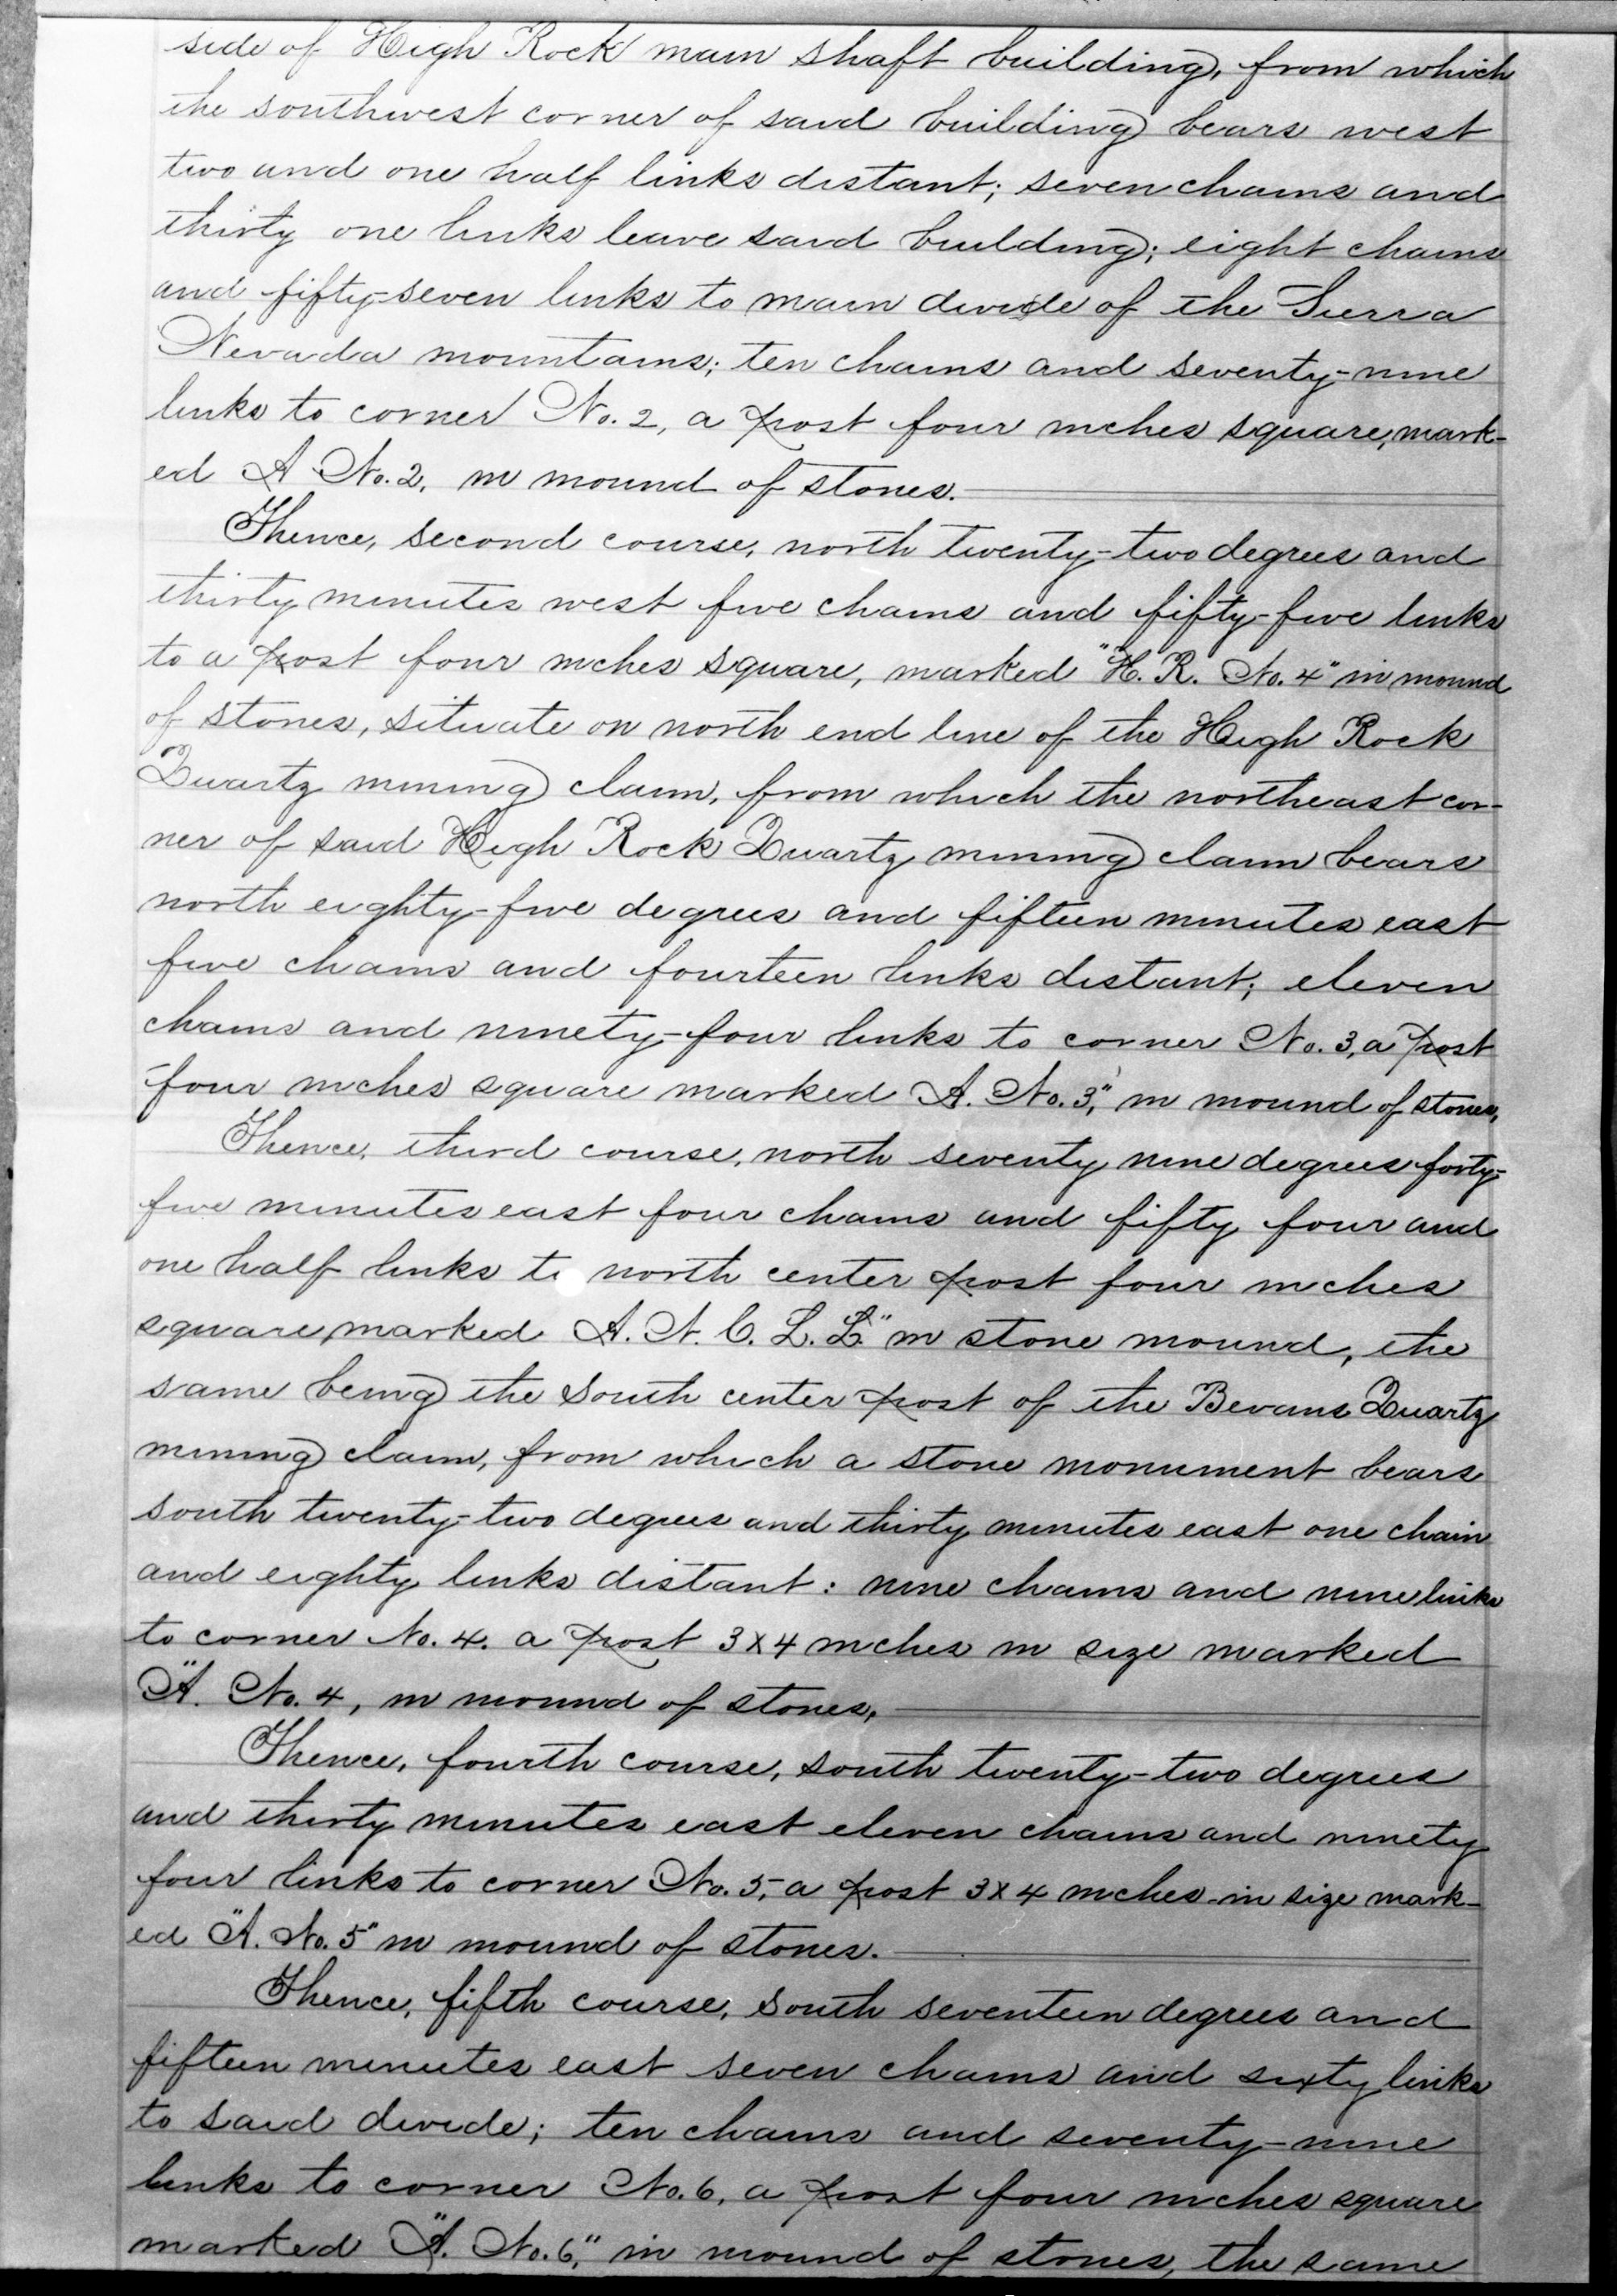 side of High Rock main shaft building, from which
the southwest corner of said building bears west
two and one half links distant; seven chains and
thirty one links leave said building; eight chains
and fifty-seven links to main divide of the Sierra
Nevada mountains; ten chains and seventy-nine
links to corner No. 2, a post four inches square, mark-
ed A No. 2, in mound of stones.
Thence, second course, north twenty-two degrees and
thirty minutes west five chains and fifty-five links
to a post four inches square, marked "H. R. No. 4" in mound
of stones, situate on north end line of the High Rock
Quartz mining claim, from which the northeast cor-
ner of said High Rock Quartz mining claim bears
north eighty-five degrees and fifteen minutes east
five chains and fourteen links distant; eleven
chains and ninety-four links to corner No. 3, a post
four inches square marked A. No. 3," in mound of stones,
Thence, third course, north seventy nine degrees forty-
five minutes east four chains and fifty four and
one half links to north center post four inches
square, marked A. N. C. L. L." in stone mound, the
same being the south center post of the Bevans Quartz
mining claim, from which a stone monument bears
south twenty-two degrees and thirty minutes east one chain
and eighty links distant: nine chains and nine links
to corner No. 4. a post 3x4 inches in size marked
"A. No. 4, in mound of stones,
Thence, fourth course, south twenty-two degrees
and thirty minutes east eleven chains and ninety
four links to corner No. 5, a post 3x4 inches in size mark-
ed "A. No. 5" in mound of stones.
Thence, fifth course, south seventeen degrees and
fifteen minutes east seven chains and sixty links
to said divide; ten chains and seventy-nine
links to corner No. 6, a post four inches square
marked "A. No. 6," in mound of stones, the same